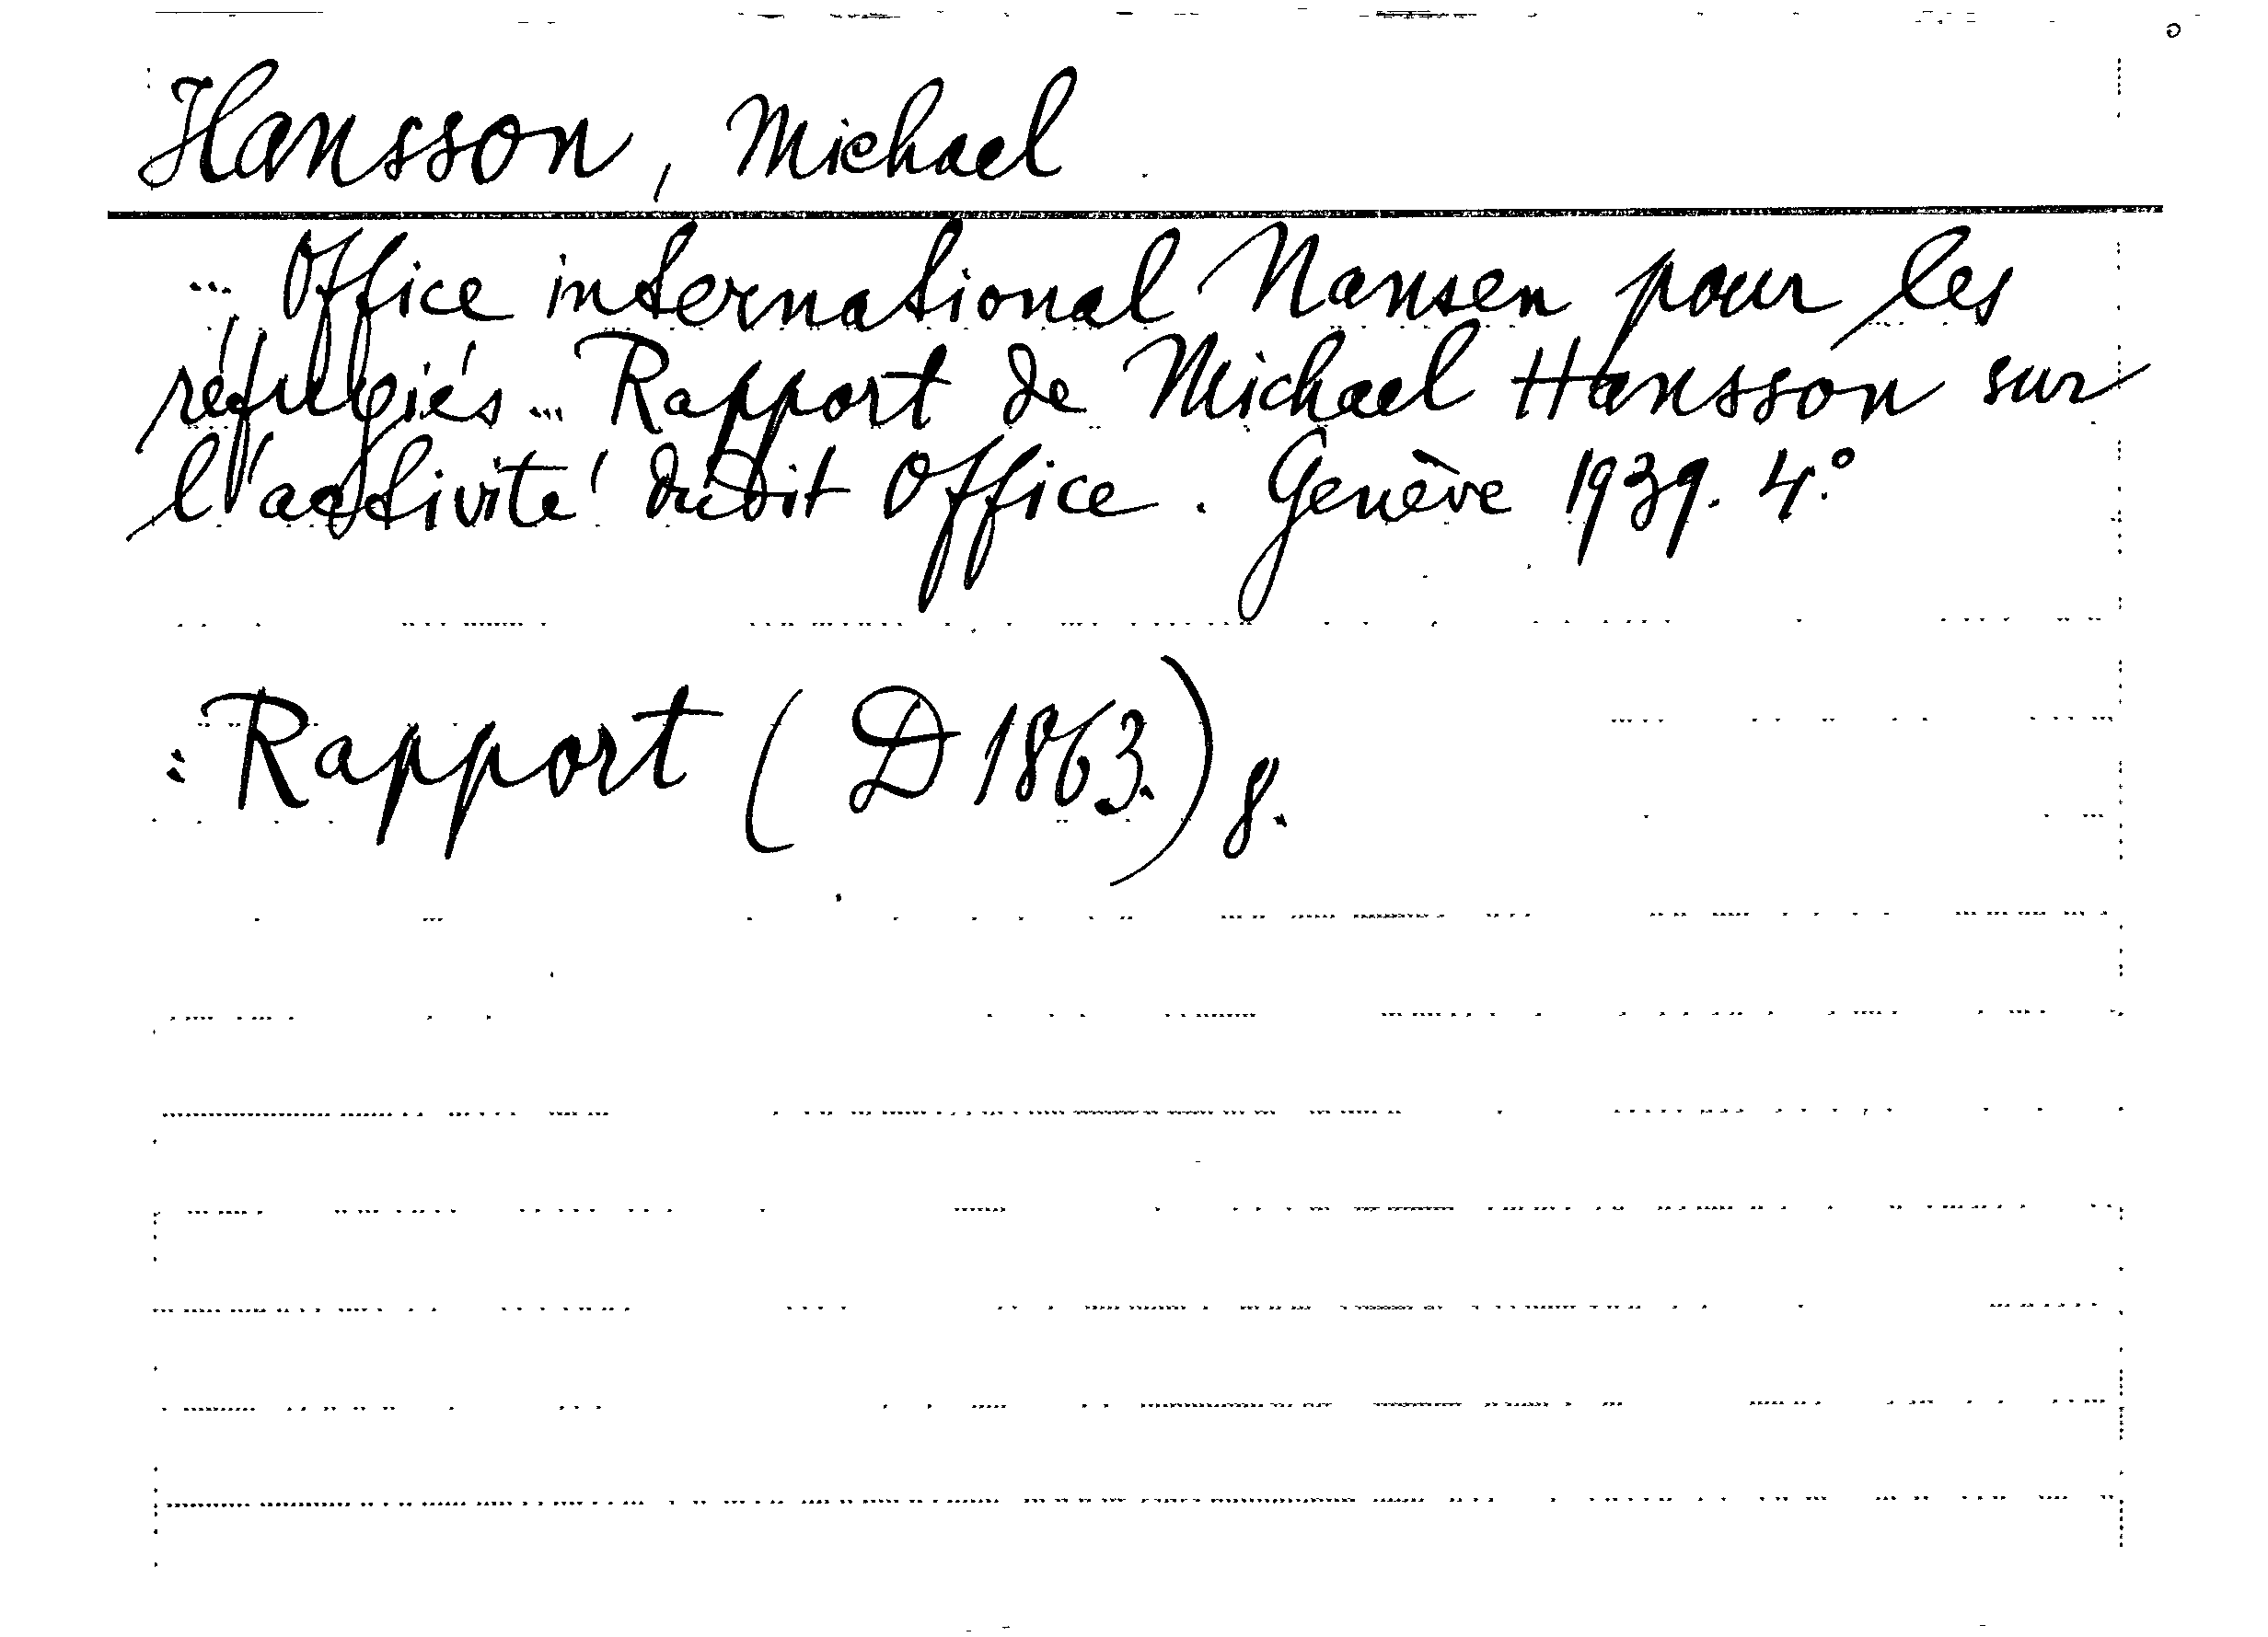 Hansson, Michael
... Office international Nansen pour les
réfugiés... Rapport de Michael Hansson sur
l'activité dudit Office. Genève 1939. 4°.
: Rapport (D 1863.) 8.